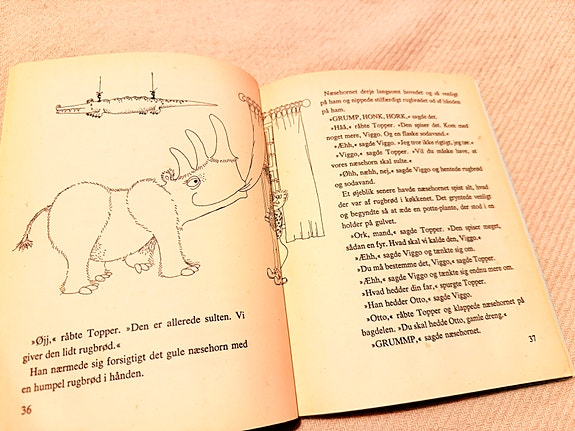 »Øjj,« råbte Topper. »Den er allerede sulten. Vi
giver den lidt rugbrød.«
Han nærmede sig forsigtigt det gule næsehorn med
en humpel rugbrød i hånden.
36
Næsehornet drejede langsomt hovedet og så venligt
på ham og nippede stilfærdigt rugbrødet ud af hånden
på ham.
»GRUMP, HONK, HORK,« sagde det.
»Håå,« råbte Topper. »Den spiser det. Kom med
noget mere, Viggo. Og en flaske sodavand.«
»Æhh,« sagde Viggo. »Jeg tror ikke rigtigt, jeg tør.«
»Viggo,« sagde Topper. »Vil du måske have, at
vores næsehorn skal sulte.«
»Øhh, næhh, nej,« sagde Viggo og hentede rugbrød
og sodavand.
Et øjeblik senere havde næsehornet spist alt, hvad
der var af rugbrød i køkkenet. Det gryntede venligt
og begyndte så at æde en potte-plante, der stod i en
holder på gulvet.
»Ork, mand,« sagde Topper. »Den spiser meget,
sådan en fyr. Hvad skal vi kalde den, Viggo.«
»Æhh,« sagde Viggo og tænkte sig om.
»Du må bestemme det, Viggo,« sagde Topper.
»Æhh,« sagde Viggo og tænkte sig endnu mere om.
»Hvad hedder din far,« spurgte Topper.
»Han hedder Otto,« sagde Viggo.
»Otto,« råbte Topper og klappede næsehornet på
bagdelen. »Du skal hedde Otto, gamle dreng.«
»GRUMMP,« sagde næsehornet.
37